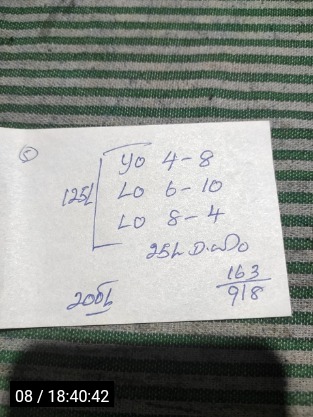 5
yo 4-8
125L
LO 6-10
LO 8-4
25L
163
918
200L
08 / 18:40:42